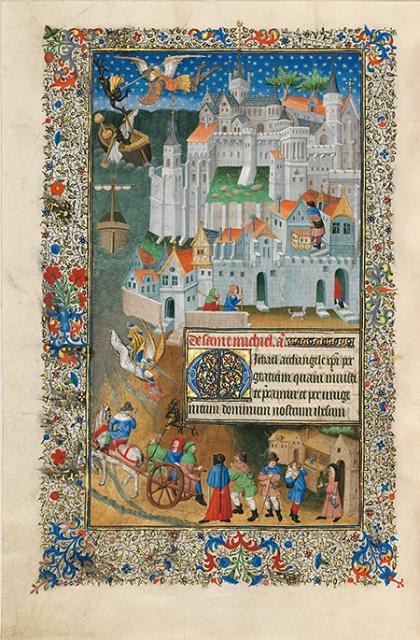 De saint michiel. a
Michael archangele xpi per
graciam quam meruisti
te precamur et per unige
nitum dominum nostrum ihesum